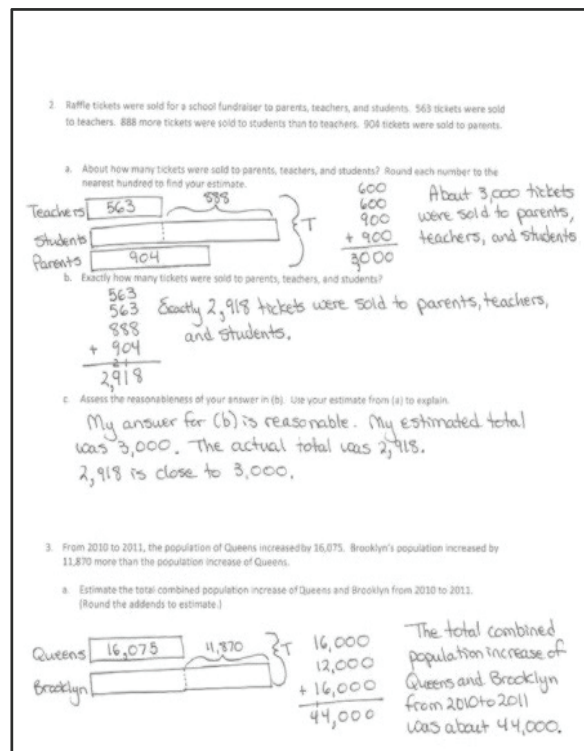 2. Raffle tickets were sold for a school fundraiser to parents, teachers, and students. 563 tickets were sold
to teachers. 888 more tickets were sold to students than to teachers. 904 tickets were sold to parents.
a. About how many tickets were sold to parents, teachers, and students? Round each number to the
nearest hundred to find your estimate.
Teachers 563 888
Students
Parents 904
T
600
600
900
+ 900
3,000
About 3,000 tickets
were sold to parents,
teachers, and students
b. Exactly how many tickets were sold to parents, teachers, and students?
563
563
888
+ 904
2 1
2,918
Exactly 2,918 tickets were sold to parents, teachers,
and students.
c. Assess the reasonableness of your answer in (b). Use your estimate from (a) to explain.
My answer for (b) is reasonable. My estimated total
was 3,000. The actual total was 2,918.
2,918 is close to 3,000.
3. From 2010 to 2011, the population of Queens increased by 16,075. Brooklyn's population increased by
11,870 more than the population increase of Queens.
a. Estimate the total combined population increase of Queens and Brooklyn from 2010 to 2011.
(Round the addends to estimate.)
Queens 16,075 11,870
Brooklyn
T
16,000
12,000
+ 16,000
44,000
The total combined
population increase of
Queens and Brooklyn
from 2010 to 2011
was about 44,000.